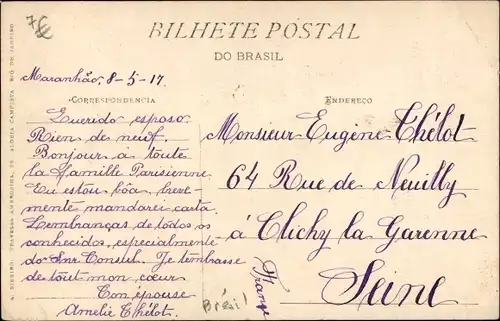 7€
BILHETE POSTAL
DO BRASIL
Maranhão, 8-5-17
CORRESPONDENCIA
ENDEREÇO
Querido esposo
Rien de neuf.
Bonjour à toute
la famille Parisienne
Eu estou bôa breve-
mente mandarei carta.
Lembranças de todos os
conhecidos, especialmente
do Snr Consul. Je t'embrasse
de tout mon cœur
Ton épouse
Amelie Thélot.
Monsieur Eugène Thélot
64 Rue de Neuilly
à Clichy la Garenne
Seine
France
Brésil
A. RIBEIRO, TRAVESSA
RIO DE JANEIRO